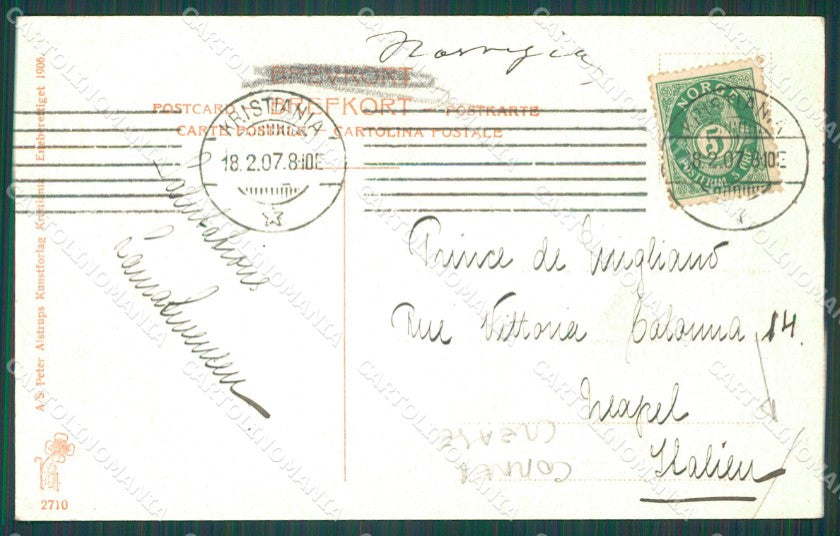 Norvegia
BREVKORT
BREFKORT
POSTCARD
POSTKARTE
CARTE POSTALE - CARTOLINA POSTALE
KRISTIANIA
18.2.07.8-10E
NORGE
5
KRISTIANIA
18.2.07.8-10E
Salutations
Prince de
Rue Vittoria Colonna 14.
Neapel
Italien
CORNER
CREASE
A. S. Peter Alstrups Kunstforlag Kristiania Eneberettiget 1906
2710
CARTOLINOMANIA